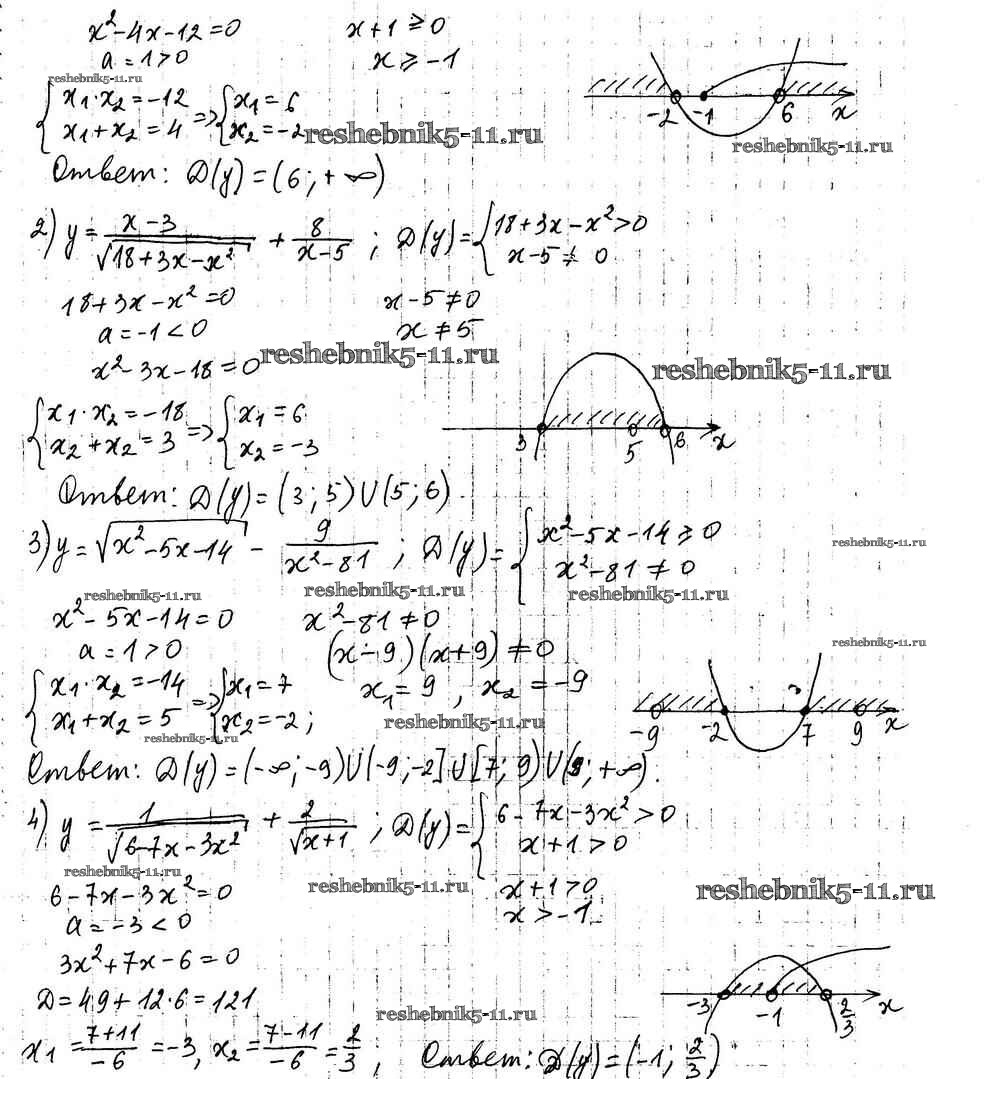 x² - 4x - 12 = 0    x + 1 ≥ 0
a = 1 > 0    x ≥ -1
reshebnik5-11.ru
{ x₁ · x₂ = -12 => { x₁ = 6
{ x₁ + x₂ = 4    { x₂ = -2
reshebnik5-11.ru
-2 -1 6 x
reshebnik5-11.ru
Ответ: D(y) = (6; +∞)
2) y = (x - 3)/√(18 + 3x - x²) + 8/(x - 5) ; D(y) = { 18 + 3x - x² > 0
{ x - 5 ≠ 0
18 + 3x - x² = 0    x - 5 ≠ 0
a = -1 < 0    x ≠ 5
reshebnik5-11.ru
x² - 3x - 18 = 0
reshebnik5-11.ru
{ x₁ · x₂ = -18 => { x₁ = 6
{ x₂ + x₂ = 3    { x₂ = -3
3 5 6 x
Ответ: D(y) = (3; 5) ∪ (5; 6).
3) y = √(x² - 5x - 14) - 9/(x² - 81) ; D(y) = { x² - 5x - 14 ≥ 0
{ x² - 81 ≠ 0
reshebnik5-11.ru
reshebnik5-11.ru reshebnik5-11.ru reshebnik5-11.ru
x² - 5x - 14 = 0    x² - 81 ≠ 0
a = 1 > 0    (x - 9)(x + 9) ≠ 0
reshebnik5-11.ru
{ x₁ · x₂ = -14 => { x₁ = 7    x₁ = 9, x₂ = -9
{ x₁ + x₂ = 5    { x₂ = -2;
reshebnik5-11.ru
reshebnik5-11.ru
-9 -2 7 9 x
Ответ: D(y) = (-∞; -9) ∪ (-9; -2] ∪ [7; 9) ∪ (9; +∞).
4) y = 1/√(6 - 7x - 3x²) + 2/√(x + 1) ; D(y) = { 6 - 7x - 3x² > 0
{ x + 1 > 0
reshebnik5-11.ru reshebnik5-11.ru reshebnik5-11.ru
6 - 7x - 3x² = 0    x + 1 > 0
a = -3 < 0    x > -1
3x² + 7x - 6 = 0
D = 49 + 12·6 = 121
-3 -1 2/3 x
reshebnik5-11.ru
x₁ = (7 + 11)/-6 = -3, x₂ = (7 - 11)/-6 = 2/3 ; Ответ: D(y) = (-1; 2/3)
reshebnik5-11.ru